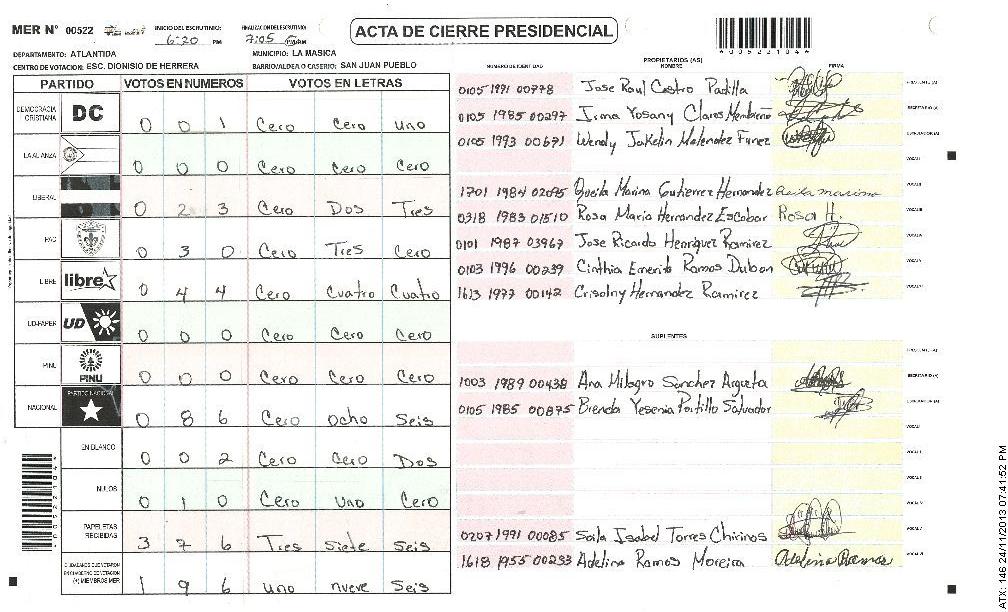 MER Nº 00522 INICIO DEL ESCRUTINIO: 6:20 PM FINALIZACION DEL ESCRUTINIO: 7:05 PM
ACTA DE CIERRE PRESIDENCIAL
DEPARTAMENTO: ATLANTIDA MUNICIPIO: LA MASICA
CENTRO DE VOTACION: ESC. DIONISIO DE HERRERA BARRIO/ALDEA O CASERIO: SAN JUAN PUEBLO
PARTIDO VOTOS EN NUMEROS VOTOS EN LETRAS
DEMOCRACIA CRISTIANA DC 0 0 1 Cero Cero uno
LA ALIANZA 0 0 0 Cero Cero Cero
LIBERAL 0 2 3 Cero Dos Tres
PAC 0 3 0 Cero Tres Cero
LIBRE libre 0 4 4 Cero Cuatro Cuatro
UD-FAPER UD 0 0 0 Cero Cero Cero
PINU PINU 0 0 0 Cero Cero Cero
NACIONAL PARTIDO NACIONAL 0 8 6 Cero ocho Seis
EN BLANCO 0 0 2 Cero Cero Dos
NULOS 0 1 0 Cero uno Cero
PAPELETAS RECIBIDAS 3 7 6 Tres siete seis
CIUDADANOS QUE VOTARON
EN CUADERNO DE VOTACION
(+) MIEMBROS MER 1 9 6 uno nueve Seis
PROPIETARIOS (AS)
NUMERO DE IDENTIDAD NOMBRE FIRMA
0105 1991 00778 Jose Raul Castro Padilla
0105 1985 00297 Irma Yosany Claros Membreño
0105 1993 00671 Wendy Jakelin Melendez Funez
1701 1984 02095 Queila Marina Gutierrez Hernandez
0318 1983 01510 Rosa Maria Hernandez Escobar Rosa H.
0101 1987 03967 Jose Ricardo Henriquez Ramirez
0103 1996 00239 Cinthia Emerita Ramos Dubon
1613 1977 00142 Crisolny Hernandez Ramirez
SUPLENTES
1003 1989 00438 Ana Milagro Sanchez Argueta
0105 1985 00875 Brenda Yesenia Portillo Salvador
0207 1991 00085 Saila Isabel Torres Chirinos
1618 1955 00233 Adelina Ramos Moreira Adelina Ramos
ATX: 146 24/11/2013 07:41:52 PM